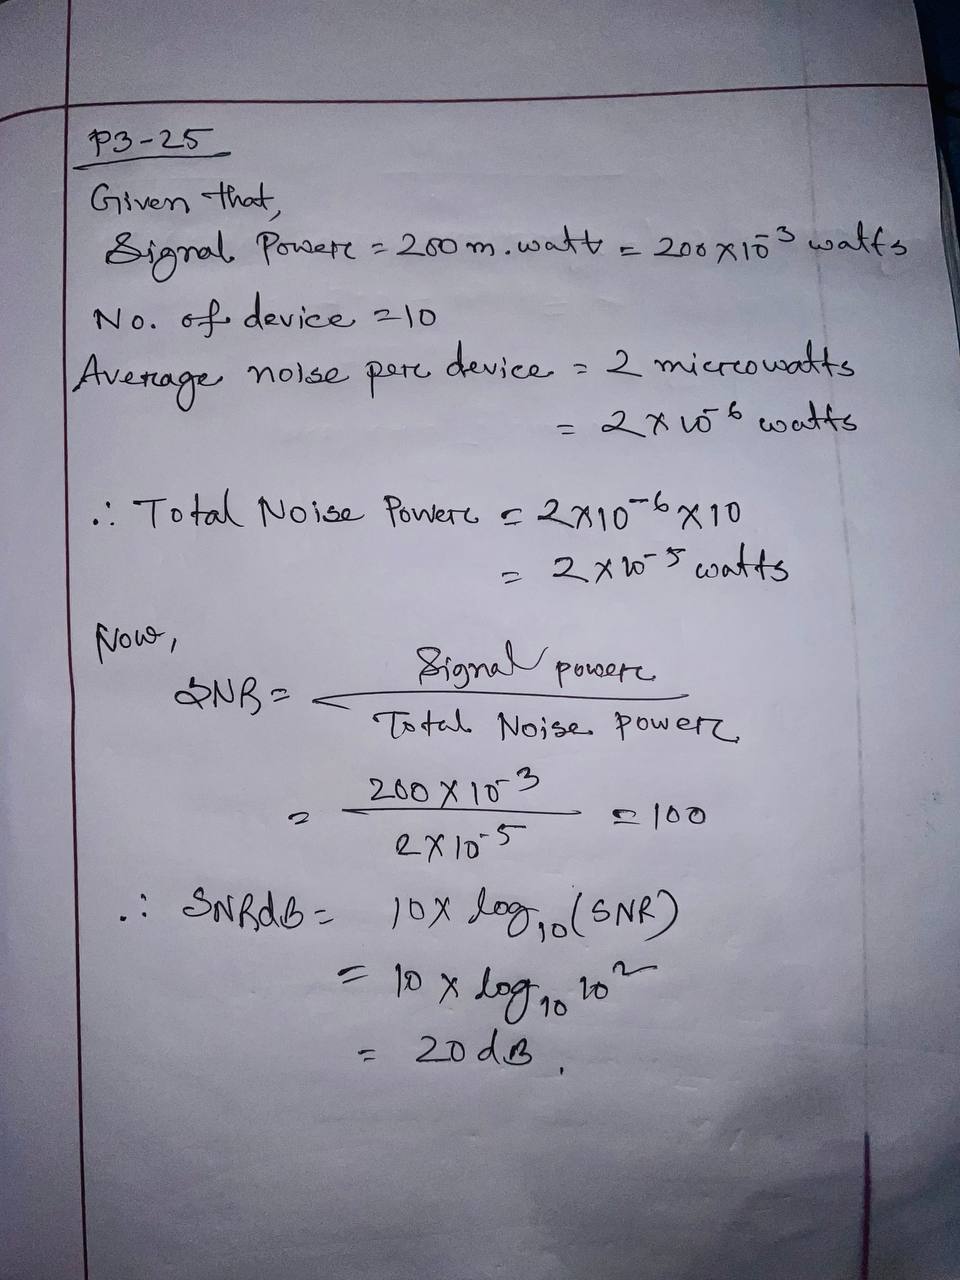 P3-25
Given that,
Signal Power = 200 m.watt = 200×10⁻³ watts
No. of device = 10
Average noise per device = 2 microwatts
= 2×10⁻⁶ watts
∴ Total Noise Power = 2×10⁻⁶×10
= 2×10⁻⁵ watts
Now,
SNR = Signal power
Total Noise Power
= 200×10⁻³ = 100
2×10⁻⁵
∴ SNRdB = 10× log₁₀(SNR)
= 10 × log₁₀ 10²
= 20 dB.